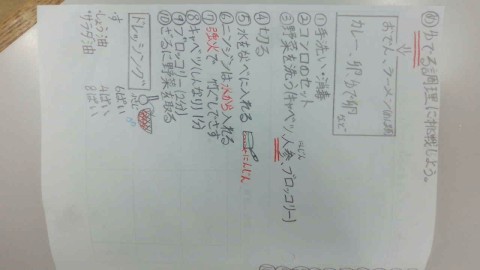 めゆでる調理に挑戦しよう。
おでん、ラーメン
カレー、卵、ゆで卵
など
①手洗い・消毒
②コンロのセット
③野菜を洗う(キャベツ、人参、ブロッコリー)
にんじん
④切る
⑤水をなべに入れる
にんじん
⑥ニンジンは水から入れる
⑦強火で 竹ぐしでさす
⑧キャベツ(しんなり)1分
⑨ブロッコリー(2分)
⑩ざるに野菜を取る
ドレッシング
す 6ぱい
しょう油 4はい
サラダ油 8はい